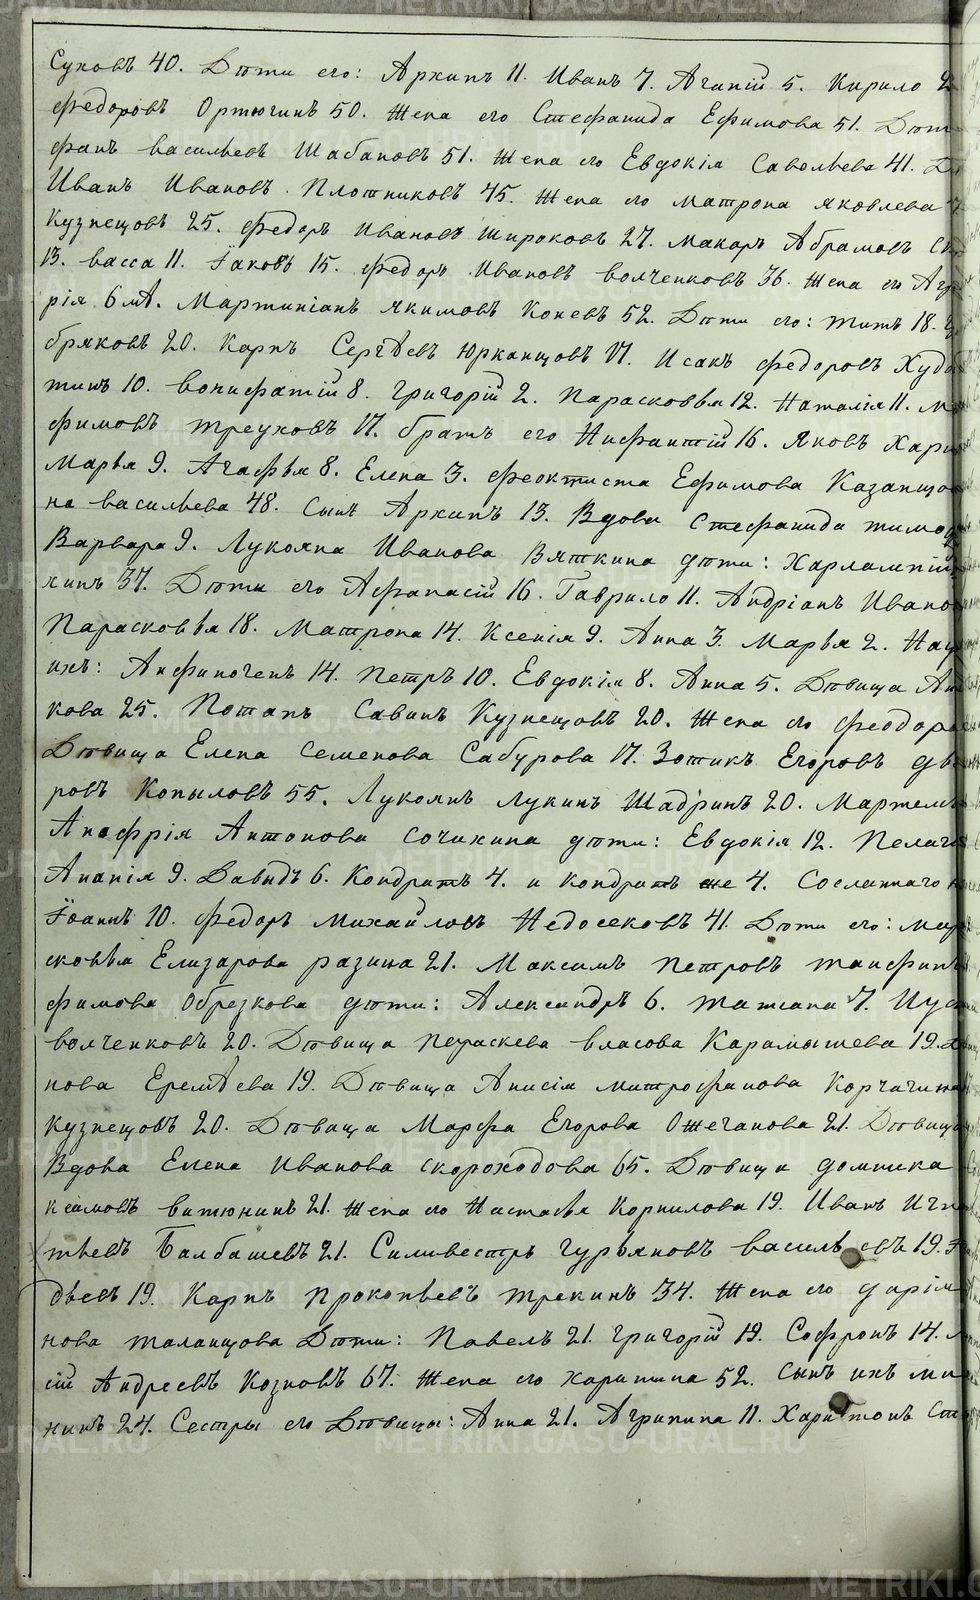 Суковъ 40. Дѣти его: Архипъ 11. Иванъ 7. Агапій 5. Кирило
Федоровъ Ортюгинъ 50. Жена его Стефанида Ефимова 51. Дѣт
фанъ Васильевъ Шабановъ 51. Жена его Евдокія Савельева 41.
Иванъ Ивановъ Плотниковъ 45. Жена его Матрона Яковлева
Кузнецовъ 25. Федоръ Ивановъ Широковъ 27. Макаръ Абрамовъ
13. Васса 11. Іаковъ 15. Федоръ Ивановъ Волченковъ 36. Жена его
рія 6 мѣ. Мартиніанъ Якимовъ Коневъ 52. Дѣти его: Титъ 18.
бряковъ 20. Карпъ Сергѣевъ Юрканцовъ 17. Исакъ Федоровъ Худо
тинъ 10. Вонифатій 8. Григорій 2. Парасковья 12. Наталія 11.
фимовъ Треуховъ 17. братъ его Нифантій 16. Яковъ Хари
Марья 9. Агафья 8. Елена 3. Феоктиста Ефимова Казанцо
на Васильева 48. Сынъ Архипъ 13. Вдова Стефанида Тимо
Варвара 9. Лукояна Иванова Вяткина дѣти: Харлампій
хинъ 37. Дѣти его Афанасій 16. Гаврило 11. Андріанъ Ивано
Парасковья 18. Матрона 14. Ксенія 9. Анна 3. Марья 2.
ихъ: Анфиногенъ 14. Петръ 10. Евдокія 8. Анна 5. Дѣвица
кова 25. Потапъ Савинъ Кузнецовъ 20. Жена его Феодора
Дѣвица Елена Семенова Сабурова 17. Зотикъ Егоровъ
ровъ Копыловъ 55. Лукоянъ Лукинъ Шадринъ 20.
Анофрія Антонова Сочихина дѣти: Евдокія 12. Пелаге
Ананія 9. Давидъ 6. Кондратъ 4. и Кондратъ же 4. Сосланнаго
Іоаннъ 10. Федоръ Михайловъ Недосековъ 41. Дѣти его: Мар
сковья Елизарова Разина 21. Максимъ Петровъ
фимова Обрезкова дѣти: Александръ 6. Татіана 7. Иус
Волченковъ 20. Дѣвица Параскева Власова Карамышева 19.
нова Еремѣева 19. Дѣвица Анисія Митрофанова Корчагина
Кузнецовъ 20. Дѣвица Марфа Егорова Ожеганова 21. Дѣвица
Вдова Елена Иванова Скороходова 65. Дѣвица Домника
ксимовъ Витюнинъ 21. Жена его Настасья Корнилова 19. Иванъ Игна
тьевъ Балбашевъ 21. Сильвестръ Гурьяновъ Васильевъ 19.
дьевъ 19. Карпъ Прокопьевъ Трекинъ 34. Жена его Дарія
нова Таланцова Дѣти: Павелъ 21. Григорій 19. Софронъ 14.
сій Андреевъ Козновъ 67. Жена его Харитина 52. Сынъ ихъ
нинъ 24. Сестры его Дѣвицы: Анна 21. Агрипина 11. Харитонъ
METRIKI.GASO-URAL.RU